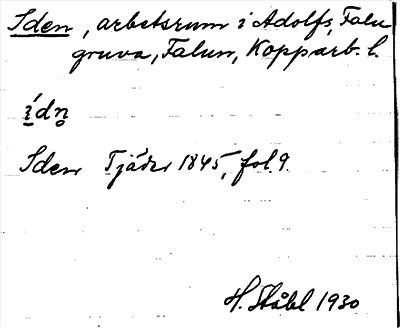 Iden, arbetsrum i Adolfs, Falu
gruva, Falun, Kopparb. l.
ídn̥
Iden Tjäder 1845, fol. 9.
H. Ståhl 1930